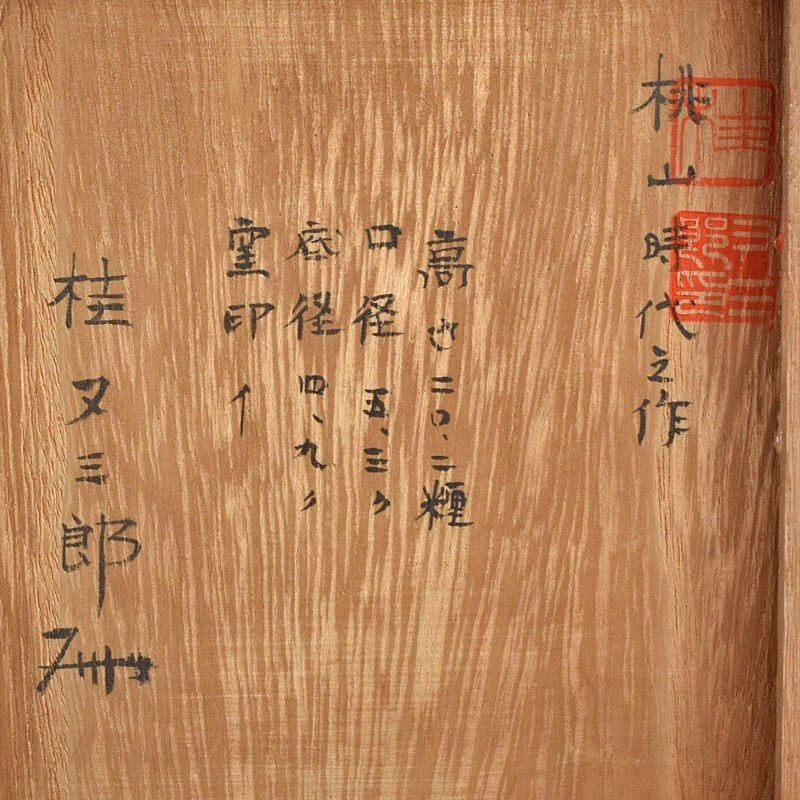 桃山時代之作
高サ二〇、二糎
口径五、三〃
底径四、九〃
窯印イ
桂又三郎